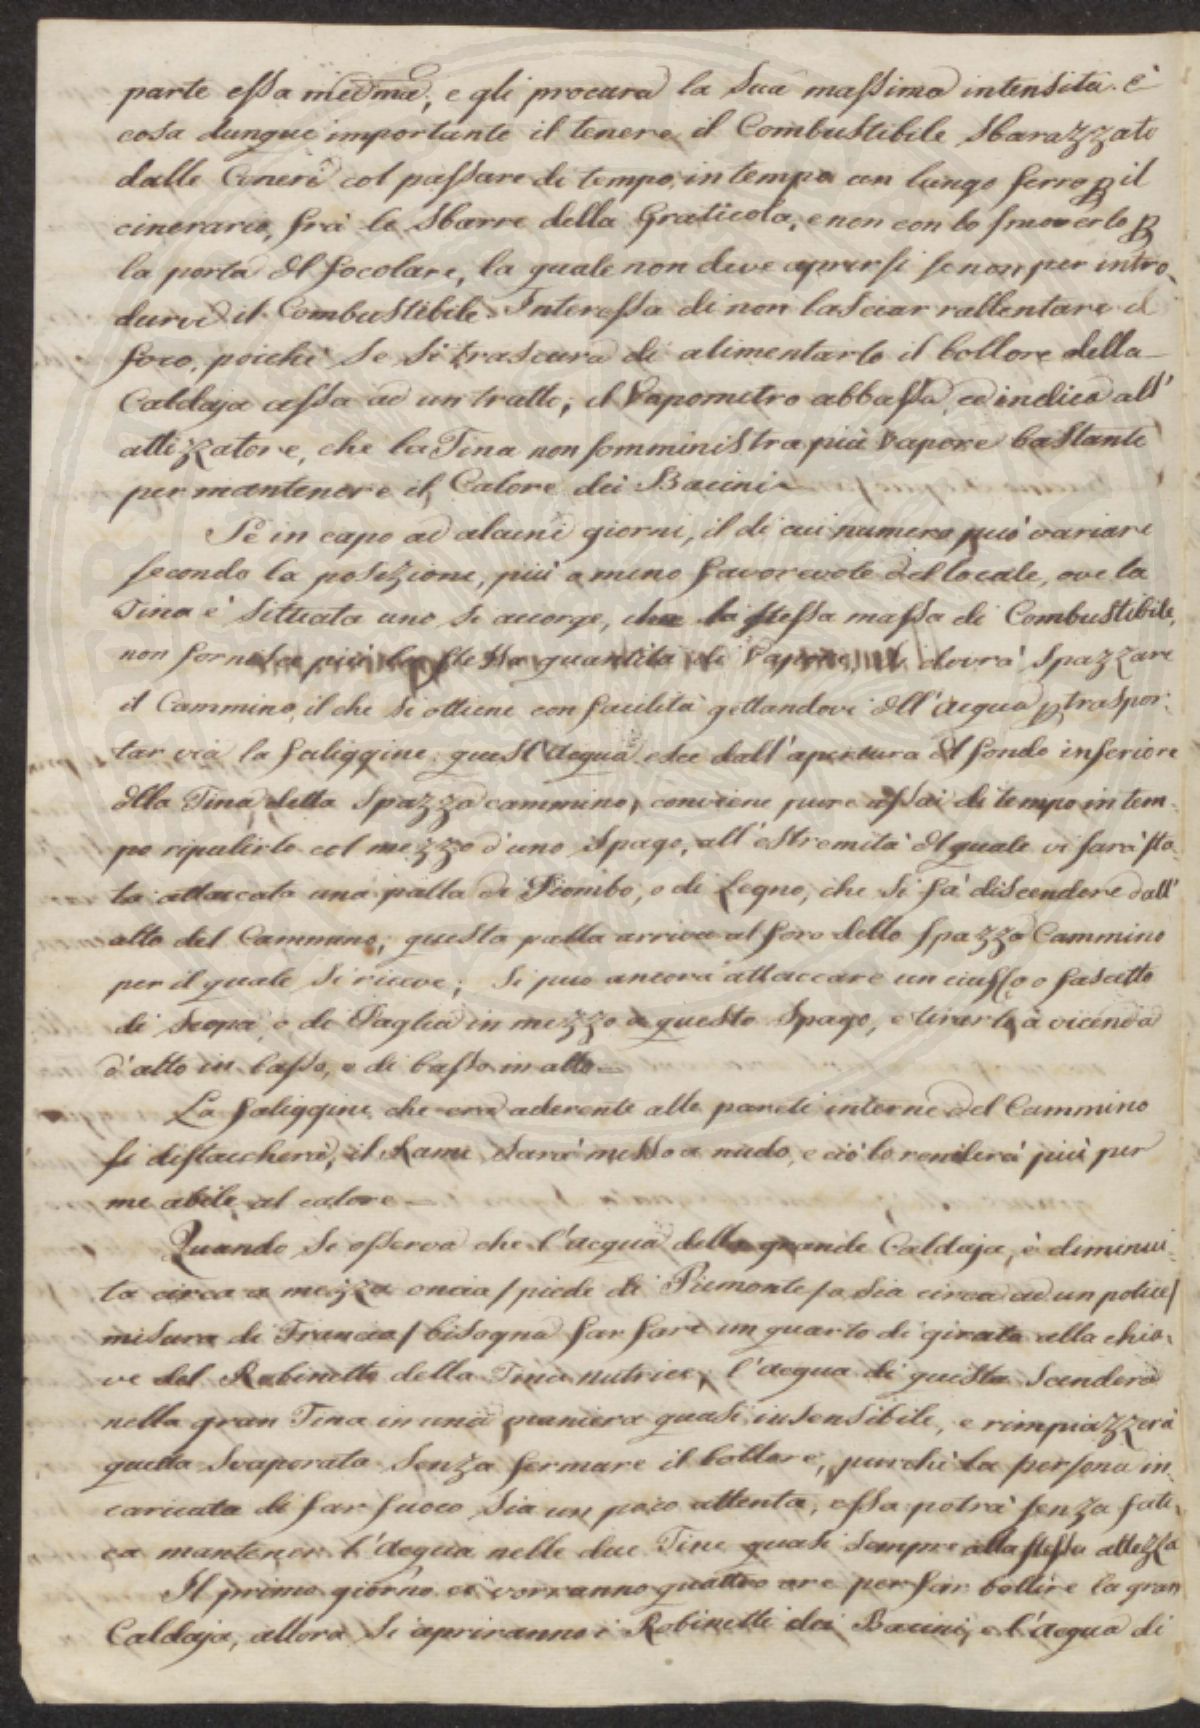 parte essa med.ma, e gli procura la sua massima intensità. è
cosa dunque importante il tenere il Combustibile sbarazzato
dalle Ceneri col passare di tempo in tempo un lungo ferro p il
cinerario, frà le Sbarre della Graticola, e non con lo smoverlo p
la porta del focolare, la quale non deve aprirsi se non per intro-
durvi il Combustibile. Interessa di non lasciar rallentare il
foco, poichè se si trascura di alimentarlo il bollore della
Caldaja cessa ad un tratto; il Vapometro abbassa, ed indica all'
attizzatore, che la Tina non somministra più Vapore bastante
per mantenere il Calore dei Bacini -
Se in capo ad alcuni giorni, il di cui numero può variare
secondo la posizione, più o meno favorevole del locale, ove la
Tina è situata uno si accorge, che la stessa massa di Combustibile,
non fornisce più la stessa quantità di Vapore, si dovrà Spazzare
il Cammino, il che si ottiene con facilità gettandovi dell'acqua p traspor-
tar via la faliggine, quest'acqua esce dall'apertura del fondo inferiore
della Tina detta Spazza cammino, conviene pure assai di tempo in tem-
po ripulirlo col mezzo d'uno Spago, all'estremità del quale vi sarà sta-
ta attaccata una palla di Piombo, o di Legno, che si fà discendere dall'
alto del Cammino, questa palla arriva al foro dello Spazza Cammino
per il quale si riceve; Si può ancora attaccare un ciuffo o fascetto
di Scopa, o di Paglia in mezzo a questo Spago, e tirarlo à vicenda
d'alto in basso, e di basso in alto -
La faliggine che era aderente alle pareti interne del Cammino
si distaccherà, il Rame sarà messo a nudo, e ciò lo renderà più per
me abile al calore -
Quando si osserva che l'acqua della grande Caldaja, è diminui-
ta circa a mezza oncia / piede di Piemonte / o sia circa ad un police /
misura di Francia / bisogna far fare un quarto di girata alla chia-
ve del Robinetto della Tina nutrice, l'acqua di questa scenderà
nella gran Tina in una maniera quasi insensibile, e rimpiazzerà
quella svaporata senza fermare il bollore, purchè la persona in
caricata di far fuoco sia un poco attenta, essa potrà senza fati-
ca mantener l'acqua nelle due Tine quasi sempre alla stessa altezza
Il primo giorno ci vorranno quattro ore per far bollire la gran
Caldaja, allora si apriranno i Robinetti dei Bacini, e l'acqua di